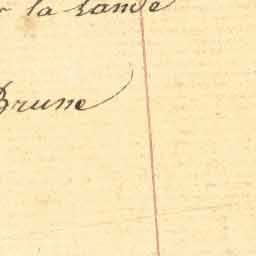 la Lande
Brune